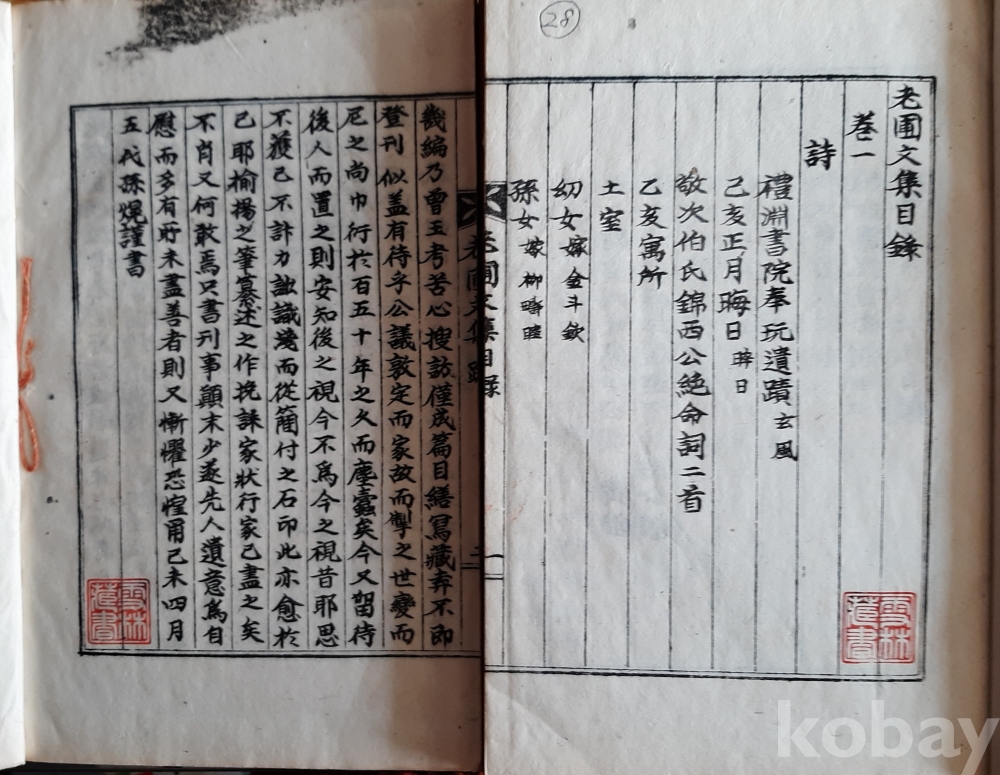 老圃文集目錄
卷一
詩
禮淵書院奉玩遺蹟 玄風
己亥正月晦日 晬日
敬次伯氏錦西公絶命詞二首
乙亥寓所
土室
幼女 嫁金斗欽
孫女 嫁柳時睦
28
雪林藏書
老圃文集目錄
幾編乃曾王考苦心搜訪僅成篇目繕寫藏弆不即
登刊似盖有待乎公議敦定而家故而掣之世變而
尼之尚巾衍於百五十年之久而塵蠹矣今又留待
後人而置之則安知後之視今不爲今之視昔耶思
不獲已不計力詘識淺而從簡付之石印此亦愈於
己耶揄揚之筆纂述之作挽誄家狀行家已盡之矣
不肖又何敢焉只書刊事顚末少遂先人遺意爲自
慰而多有所未盡善者則又慚懼恐惶爾己未四月
五代孫謹書
雪林藏書
kobay